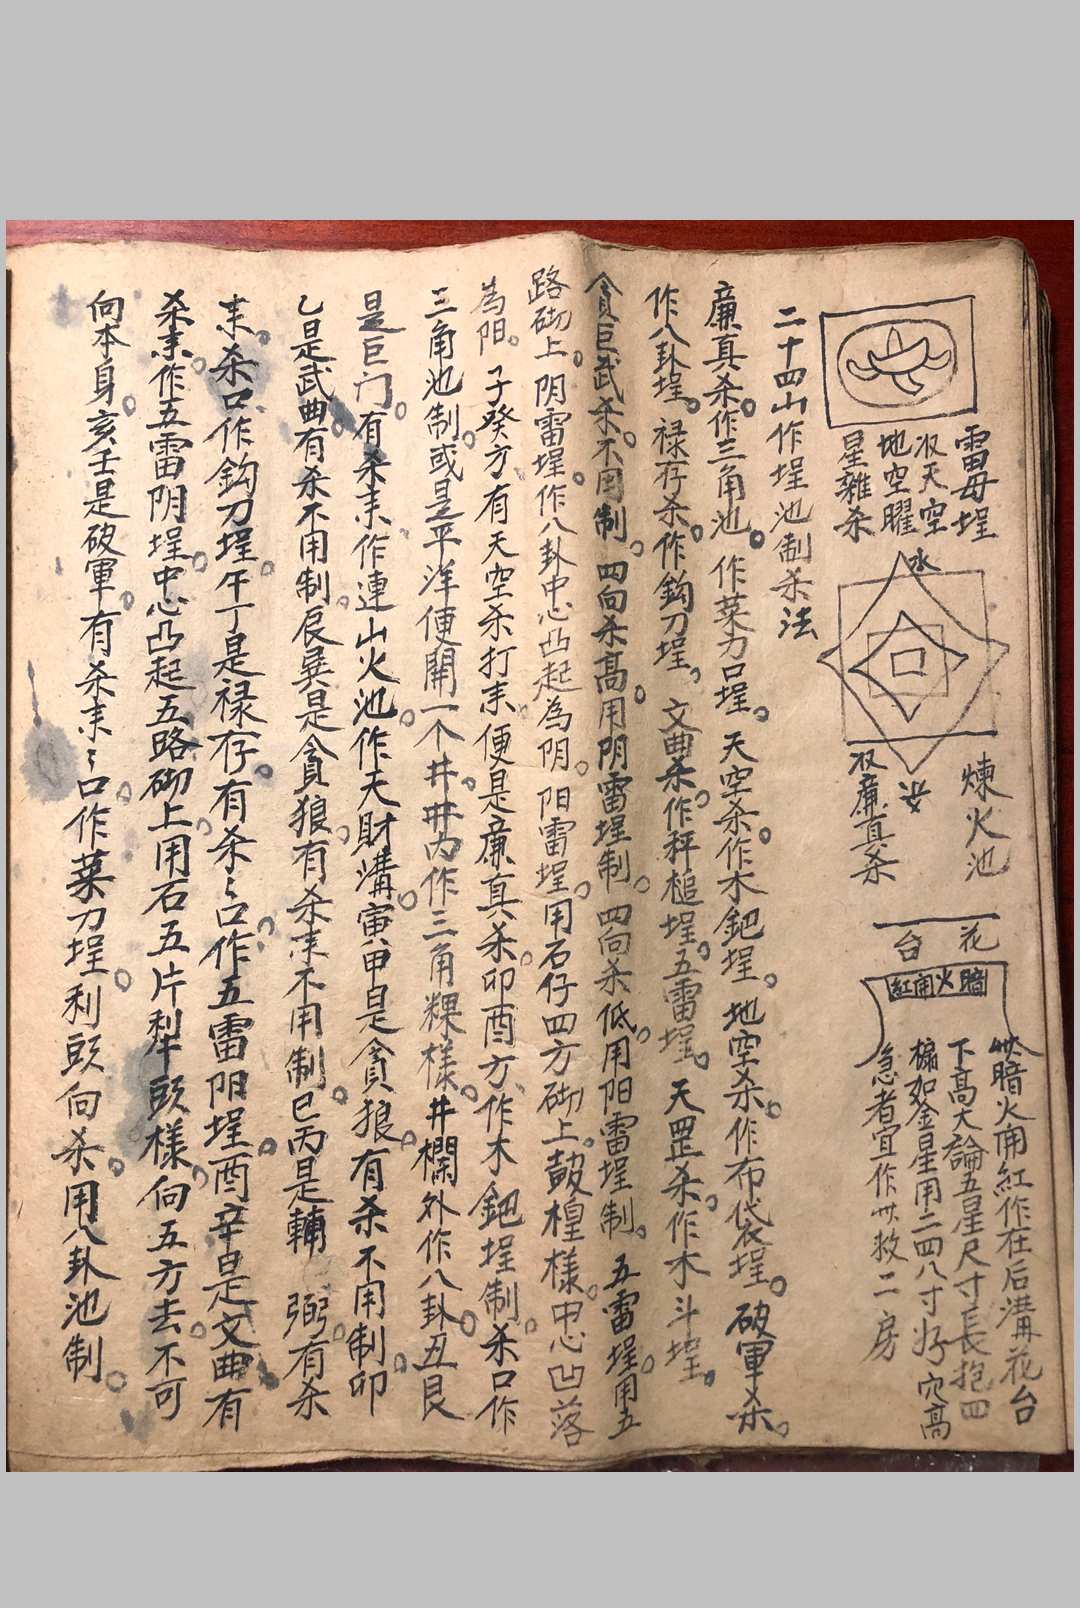 雷母埕
収天空
地空曜
星雜杀
水
煉火池
収廉真杀
花台
暗火甪紅
暗火甪紅作在后溝花台
下高大論五星尺寸長抱四
櫞如金星用二四八寸好穴高
急者宜作丗救二房
二十四山作埕池制杀法
廉真杀作三角池。作菜刀口埕。天空杀作木鈀埕。地空杀作布袋埕。破軍杀。
作八卦埕。禄存杀作鈎刀埕。文曲杀作秤槌埕。五雷埕。天罡杀作木斗埕。
貪巨武杀不用制。四向杀高用阴雷埕制。四向杀低用阳雷埕制。五雷埕用五
路砌上。阴雷埕作八卦中心凸起為阴。阳雷埕用石仔四方砌上。鼓樘様中心凹落
為阳。子癸方有天空杀打耒。便是廉真杀。卯酉方作木鈀埕制。杀口作
三角池制。或是平洋便開一个井。井内作三角粿様。井欄外作八卦。丑艮
是巨门。有杀耒作連山火池。作天財溝。寅甲是貪狼。有杀不用制。卯
乙是武曲有杀不用制辰巽是貪狼。有杀耒不用制。巳丙是輔弼。有杀
耒。杀口作鈎刀埕。午丁是禄存。有杀〻口作五雷阳埕。酉辛是文曲有
杀耒。作五雷阴埕。中心凸起五路砌上。用石五片犁頭様。向五方去。不可
向本身。亥壬是破軍。有杀耒〻口作菜刀埕。利頭向杀。用八卦池制。